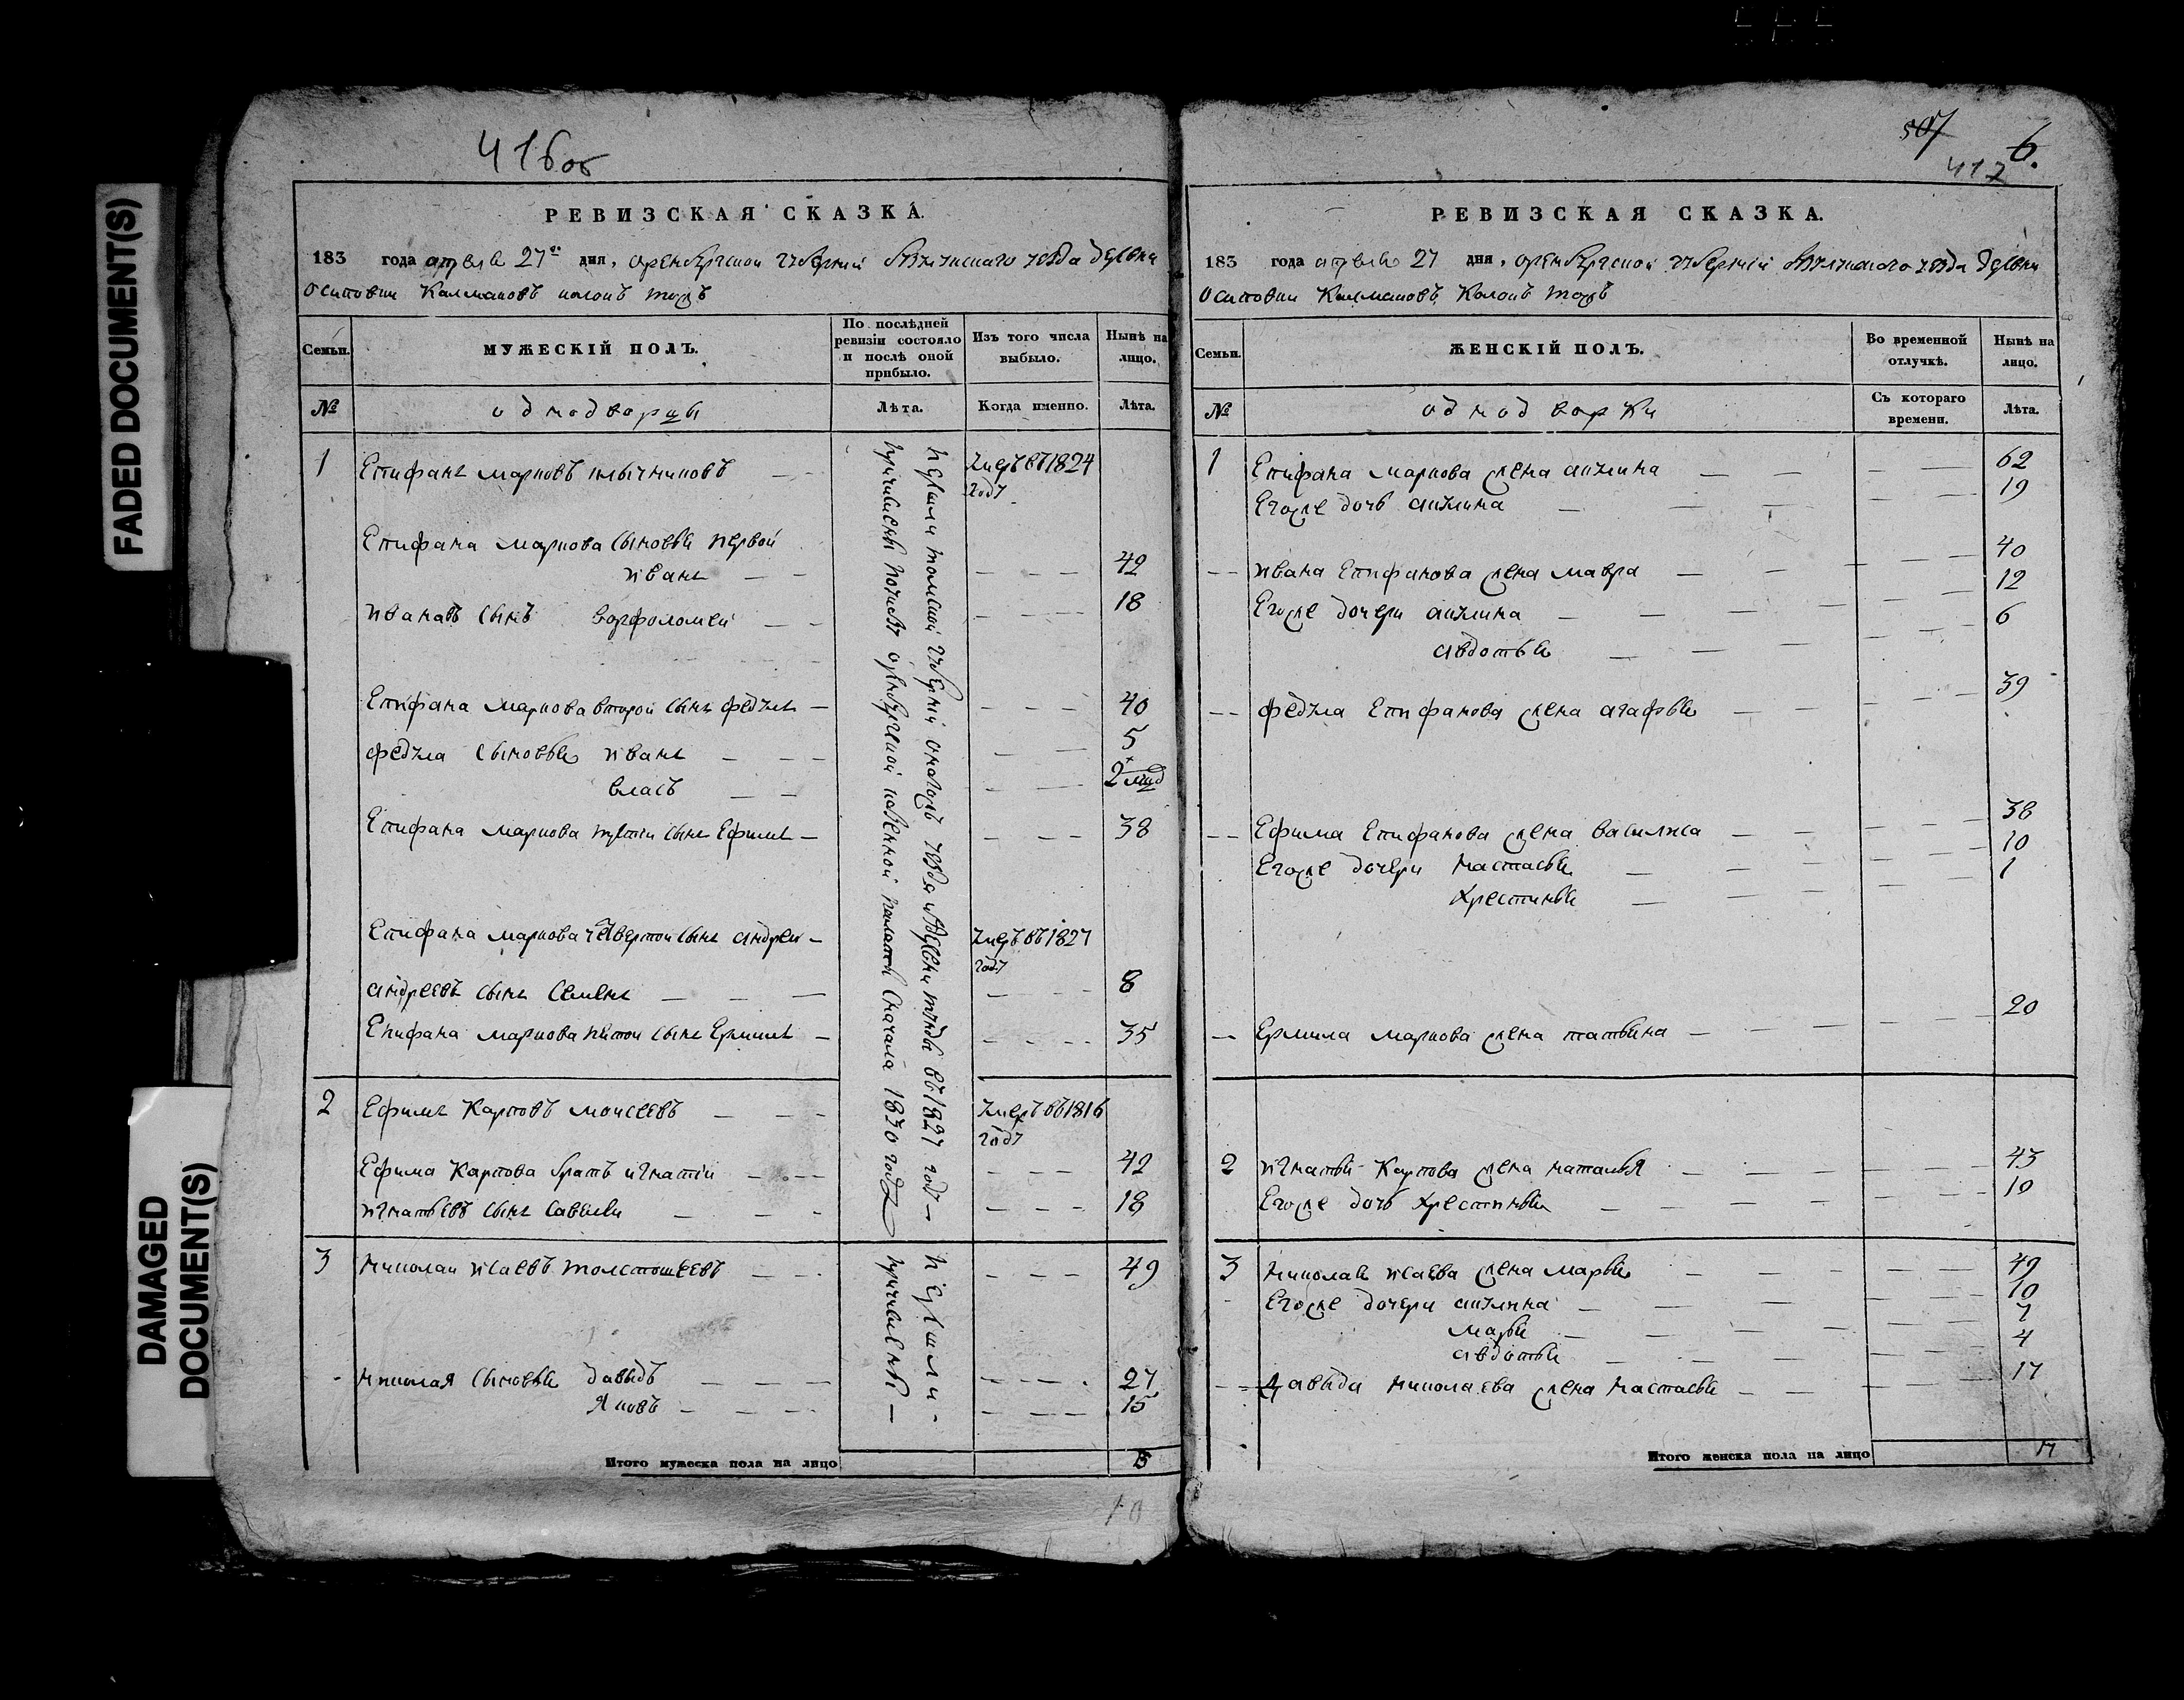 FADED DOCUMENT(S)
DAMAGED
DOCUMENT(S)
416об
РЕВИЗСКАЯ СКАЗКА.
183 года апреля 27го дня, оренбургской губернии уезда деревни
Осиповки Калмаковъ колокъ тожъ
Семьи.
МУЖЕСКІЙ ПОЛЪ.
По послѣдней ревизіи состояло и послѣ оной прибыло.
Изъ того числа выбыло.
Нынѣ на лицо.
№
однодворцы
Лѣта.
Когда именно.
Лѣта.
1 Епифанъ марковъ умеръ въ 1824 году
Епифана маркова сыновья первой
иванъ 42
ивановъ сынъ варфоломей 18
Епифана маркова второй сынъ федулъ 40
федула сыновья иванъ 5
власъ 2
Епифана маркова третiй сынъ Ефимъ 38
Епифана маркова четвертой сынъ андрей умеръ въ 1827 году
андреевъ сынъ семенъ 8
Епифана маркова пятой сынъ Ермилъ 35
2 Ефимъ Карповъ моисеевъ умеръ въ 1816 году
Ефима Карпова братъ игнатiй 42
игнатьевъ сынъ савелей 18
3 николай исаевъ толстошеевъ 49
николая сыновья давыдъ 27
Яковъ 15
перешли губернiи уезда въ 1827 году
причислены оренбургской казенной палатой сначала 1830 году
перешли
причислены
Итого мужеска пола на лицо
10
507
6.
417
РЕВИЗСКАЯ СКАЗКА.
183 года апреля 27 дня, оренбургской губернiй уезда деревни
Осиповки Калмаковъ Колокъ тожъ
Семьи.
ЖЕНСКІЙ ПОЛЪ.
Во временной отлучкѣ.
Нынѣ на лицо.
№
однодворки
Съ котораго времени.
Лѣта.
1 Епифана маркова жена акулина 62
Егоже дочь акулина 19
ивана Епифанова жена мавра 40
Егоже дочери акулина 12
авдотья 6
федула Епифанова жена агафья 39
Ефима Епифанова жена василиса 38
Егоже дочери настасья 10
хрестинья 1
Ермила маркова жена татьяна 20
2 игнатья Карпова жена наталья 43
Егоже дочь хрестинья 10
3 николая исаева жена марья 49
Егоже дочери акулина 10
марья 7
авдотья 4
Давыда николаева жена настасья 17
Итого женска пола на лицо 17